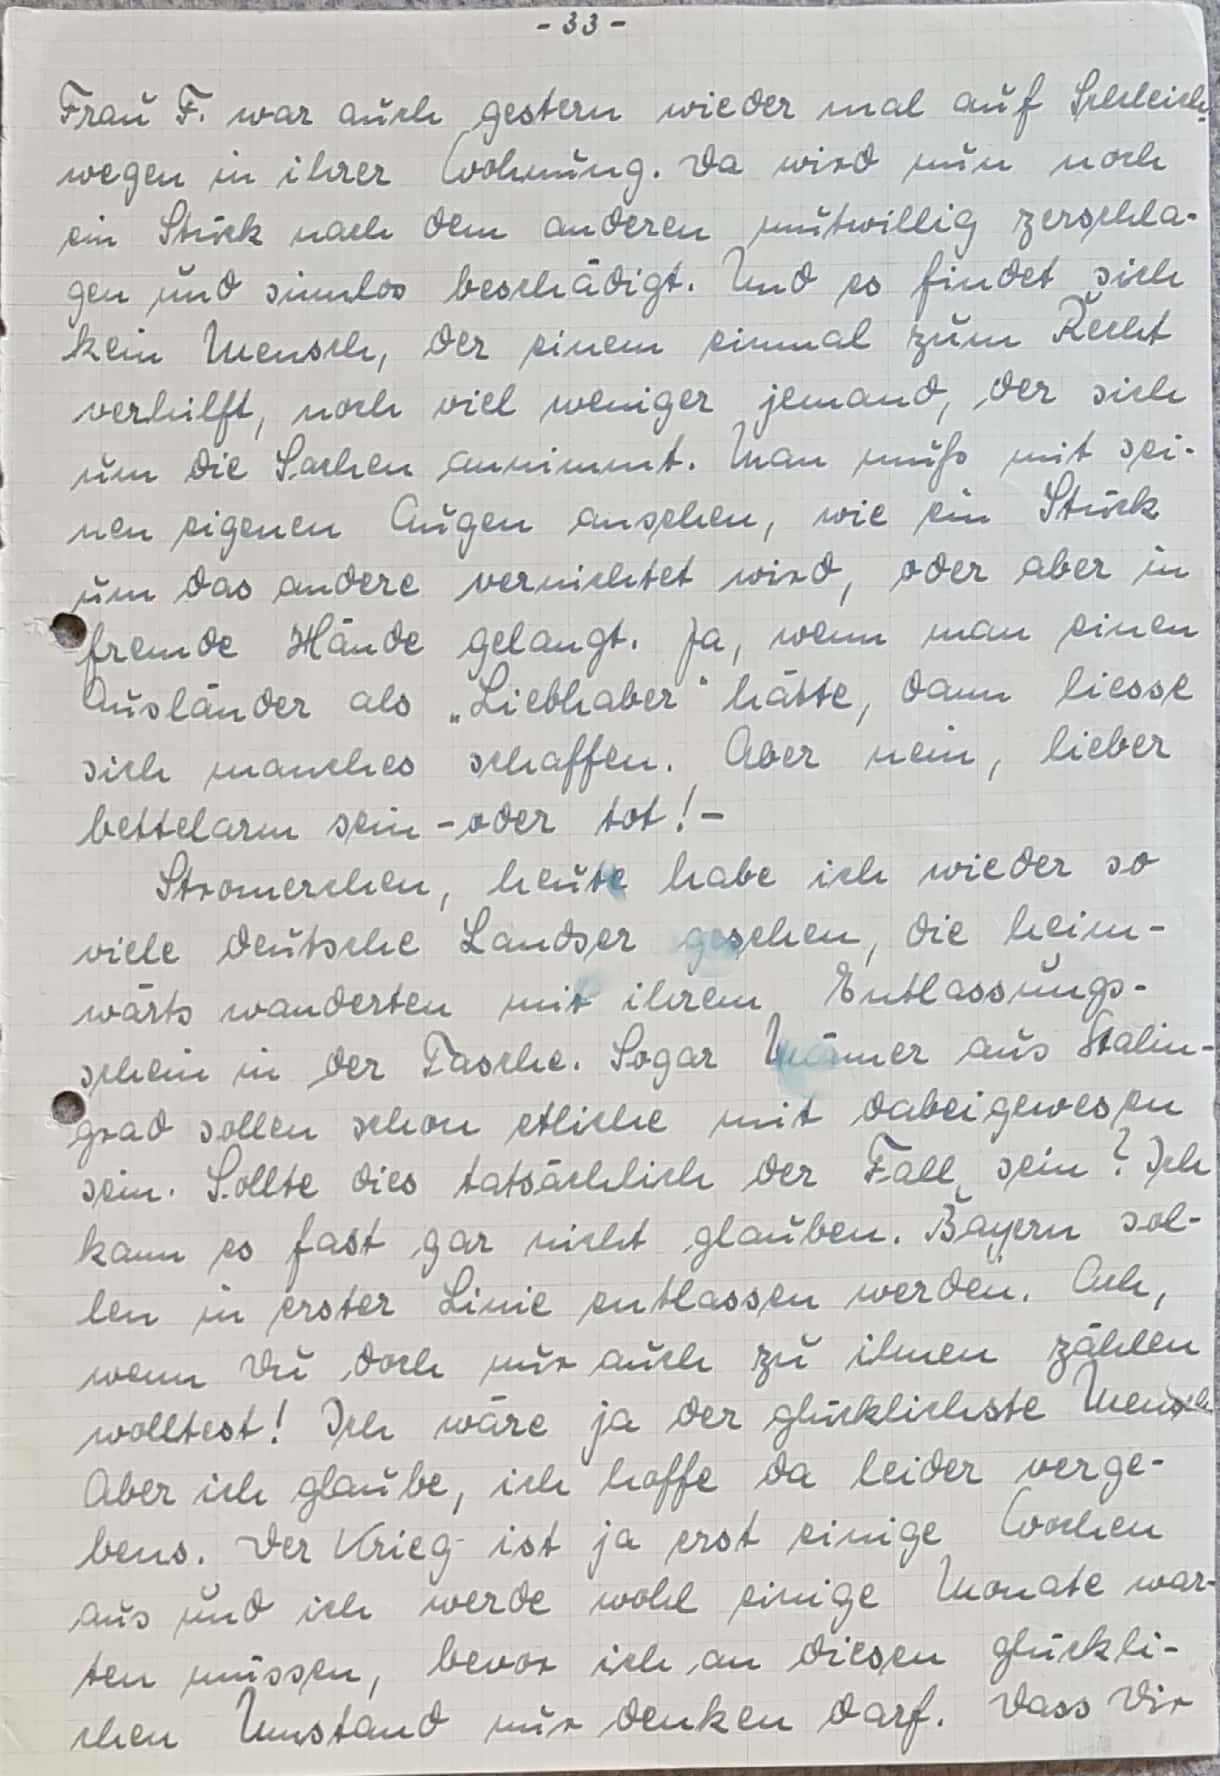 - 33 -
Frau F. war auch gestern wieder mal auf Schleich-
wegen in ihrer Wohnung. Da wird nun noch
ein Stück nach dem anderen mutwillig zerschla-
gen und sinnlos beschädigt. Und es findet sich
kein Mensch, der einem einmal zum Recht
verhilft, noch viel weniger jemand, der sich
um die Sachen annimmt. Man muß mit sei-
nen eigenen Augen ansehen, wie ein Stück
um das andere vernichtet wird, oder aber in
fremde Hände gelangt. Ja, wenn man einen
Ausländer als „Liebhaber" hätte, dann liesse
sich manches schaffen. Aber nein, lieber
bettelarm sein - oder tot! -
Stromerchen, heute habe ich wieder so
viele deutsche Landser gesehen, die heim-
wärts wanderten mit ihrem Entlassungs-
schein in der Tasche. Sogar Männer aus Stalin-
grad sollen schon etliche mit dabeigewesen
sein. Sollte dies tatsächlich der Fall sein? Ich
kann es fast gar nicht glauben. Bayern sol-
len in erster Linie entlassen werden. Ach,
wenn Du doch nur auch zu ihnen zählen
wolltest! Ich wäre ja der glücklichste Mensch
Aber ich glaube, ich hoffe da leider verge-
bens. Der Krieg ist ja erst einige Wochen
aus und ich werde wohl einige Monate war-
ten müssen, bevor ich an diesen glückli-
chen Umstand nur denken darf. Dass Dir